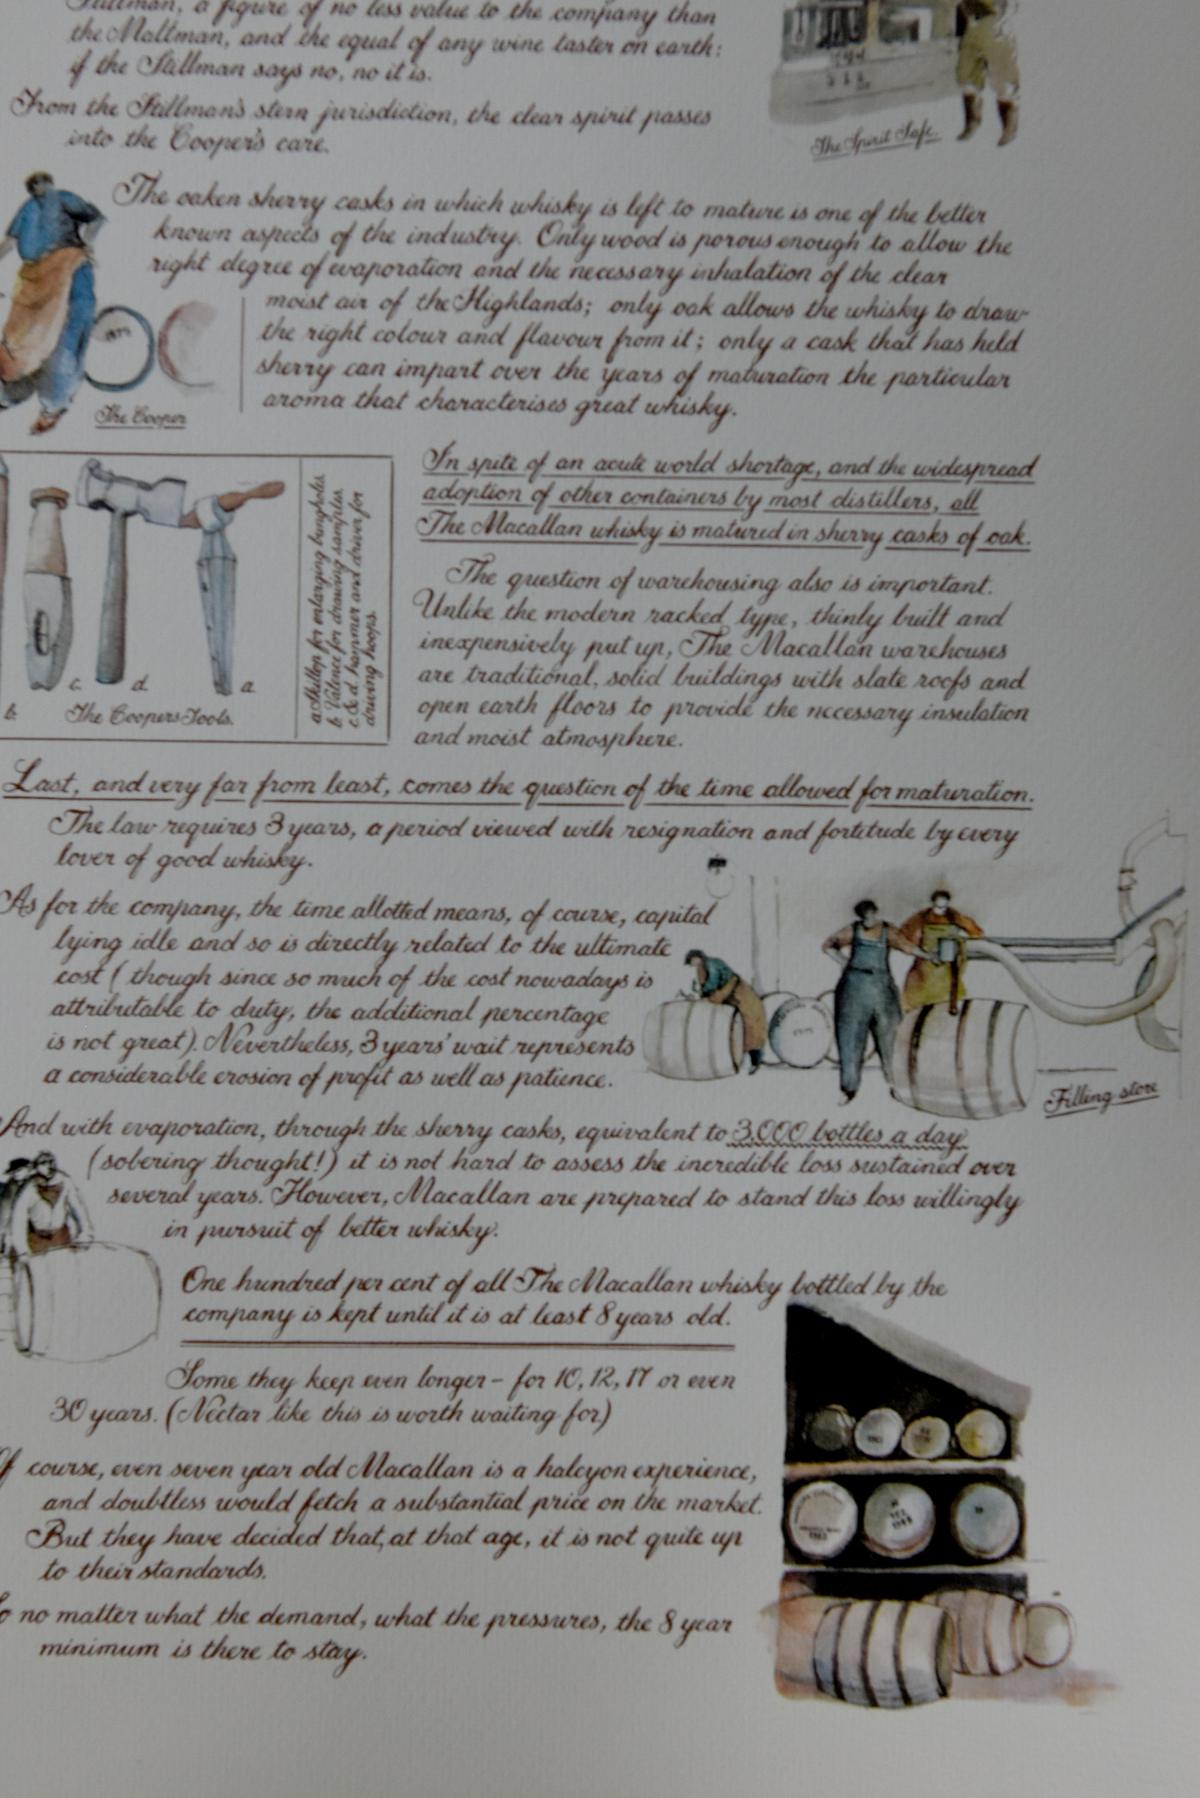 Stillman, a figure of no less value to the company than
the Maltman, and the equal of any wine taster on earth:
if the Stillman says no, no it is.
From the Stillman's stern jurisdiction, the clear spirit passes
into the Cooper's care.
The Spirit Safe.
The oaken sherry casks in which whisky is left to mature is one of the better
known aspects of the industry. Only wood is porous enough to allow the
right degree of evaporation and the necessary inhalation of the clear
moist air of the Highlands; only oak allows the whisky to draw
the right colour and flavour from it; only a cask that has held
sherry can impart over the years of maturation the particular
aroma that characterises great whisky.
The Cooper
In spite of an acute world shortage, and the widespread
adoption of other containers by most distillers, all
The Macallan whisky is matured in sherry casks of oak.
a. Skillop for enlarging bungholes.
b. Valence for drawing samples.
c. & d. hammer and driver for
driving hoops.
c. d. a.
b. The Coopers Tools.
The question of warehousing also is important.
Unlike the modern racked type, thinly built and
inexpensively put up, The Macallan warehouses
are traditional, solid buildings with slate roofs and
open earth floors to provide the necessary insulation
and moist atmosphere.
Last, and very far from least, comes the question of the time allowed for maturation.
The law requires 3 years, a period viewed with resignation and fortitude by every
lover of good whisky.
As for the company, the time allotted means, of course, capital
lying idle and so is directly related to the ultimate
cost (though since so much of the cost nowadays is
attributable to duty, the additional percentage
is not great). Nevertheless, 3 years' wait represents
a considerable erosion of profit as well as patience.
Filling store
And with evaporation, through the sherry casks, equivalent to 3,000 bottles a day
(sobering thought!) it is not hard to assess the incredible loss sustained over
several years. However, Macallan are prepared to stand this loss willingly
in pursuit of better whisky.
One hundred per cent of all The Macallan whisky bottled by the
company is kept until it is at least 8 years old.
Some they keep even longer – for 10, 12, 17 or even
30 years. (Nectar like this is worth waiting for)
Of course, even seven year old Macallan is a halcyon experience,
and doubtless would fetch a substantial price on the market.
But they have decided that, at that age, it is not quite up
to their standards.
So no matter what the demand, what the pressures, the 8 year
minimum is there to stay.